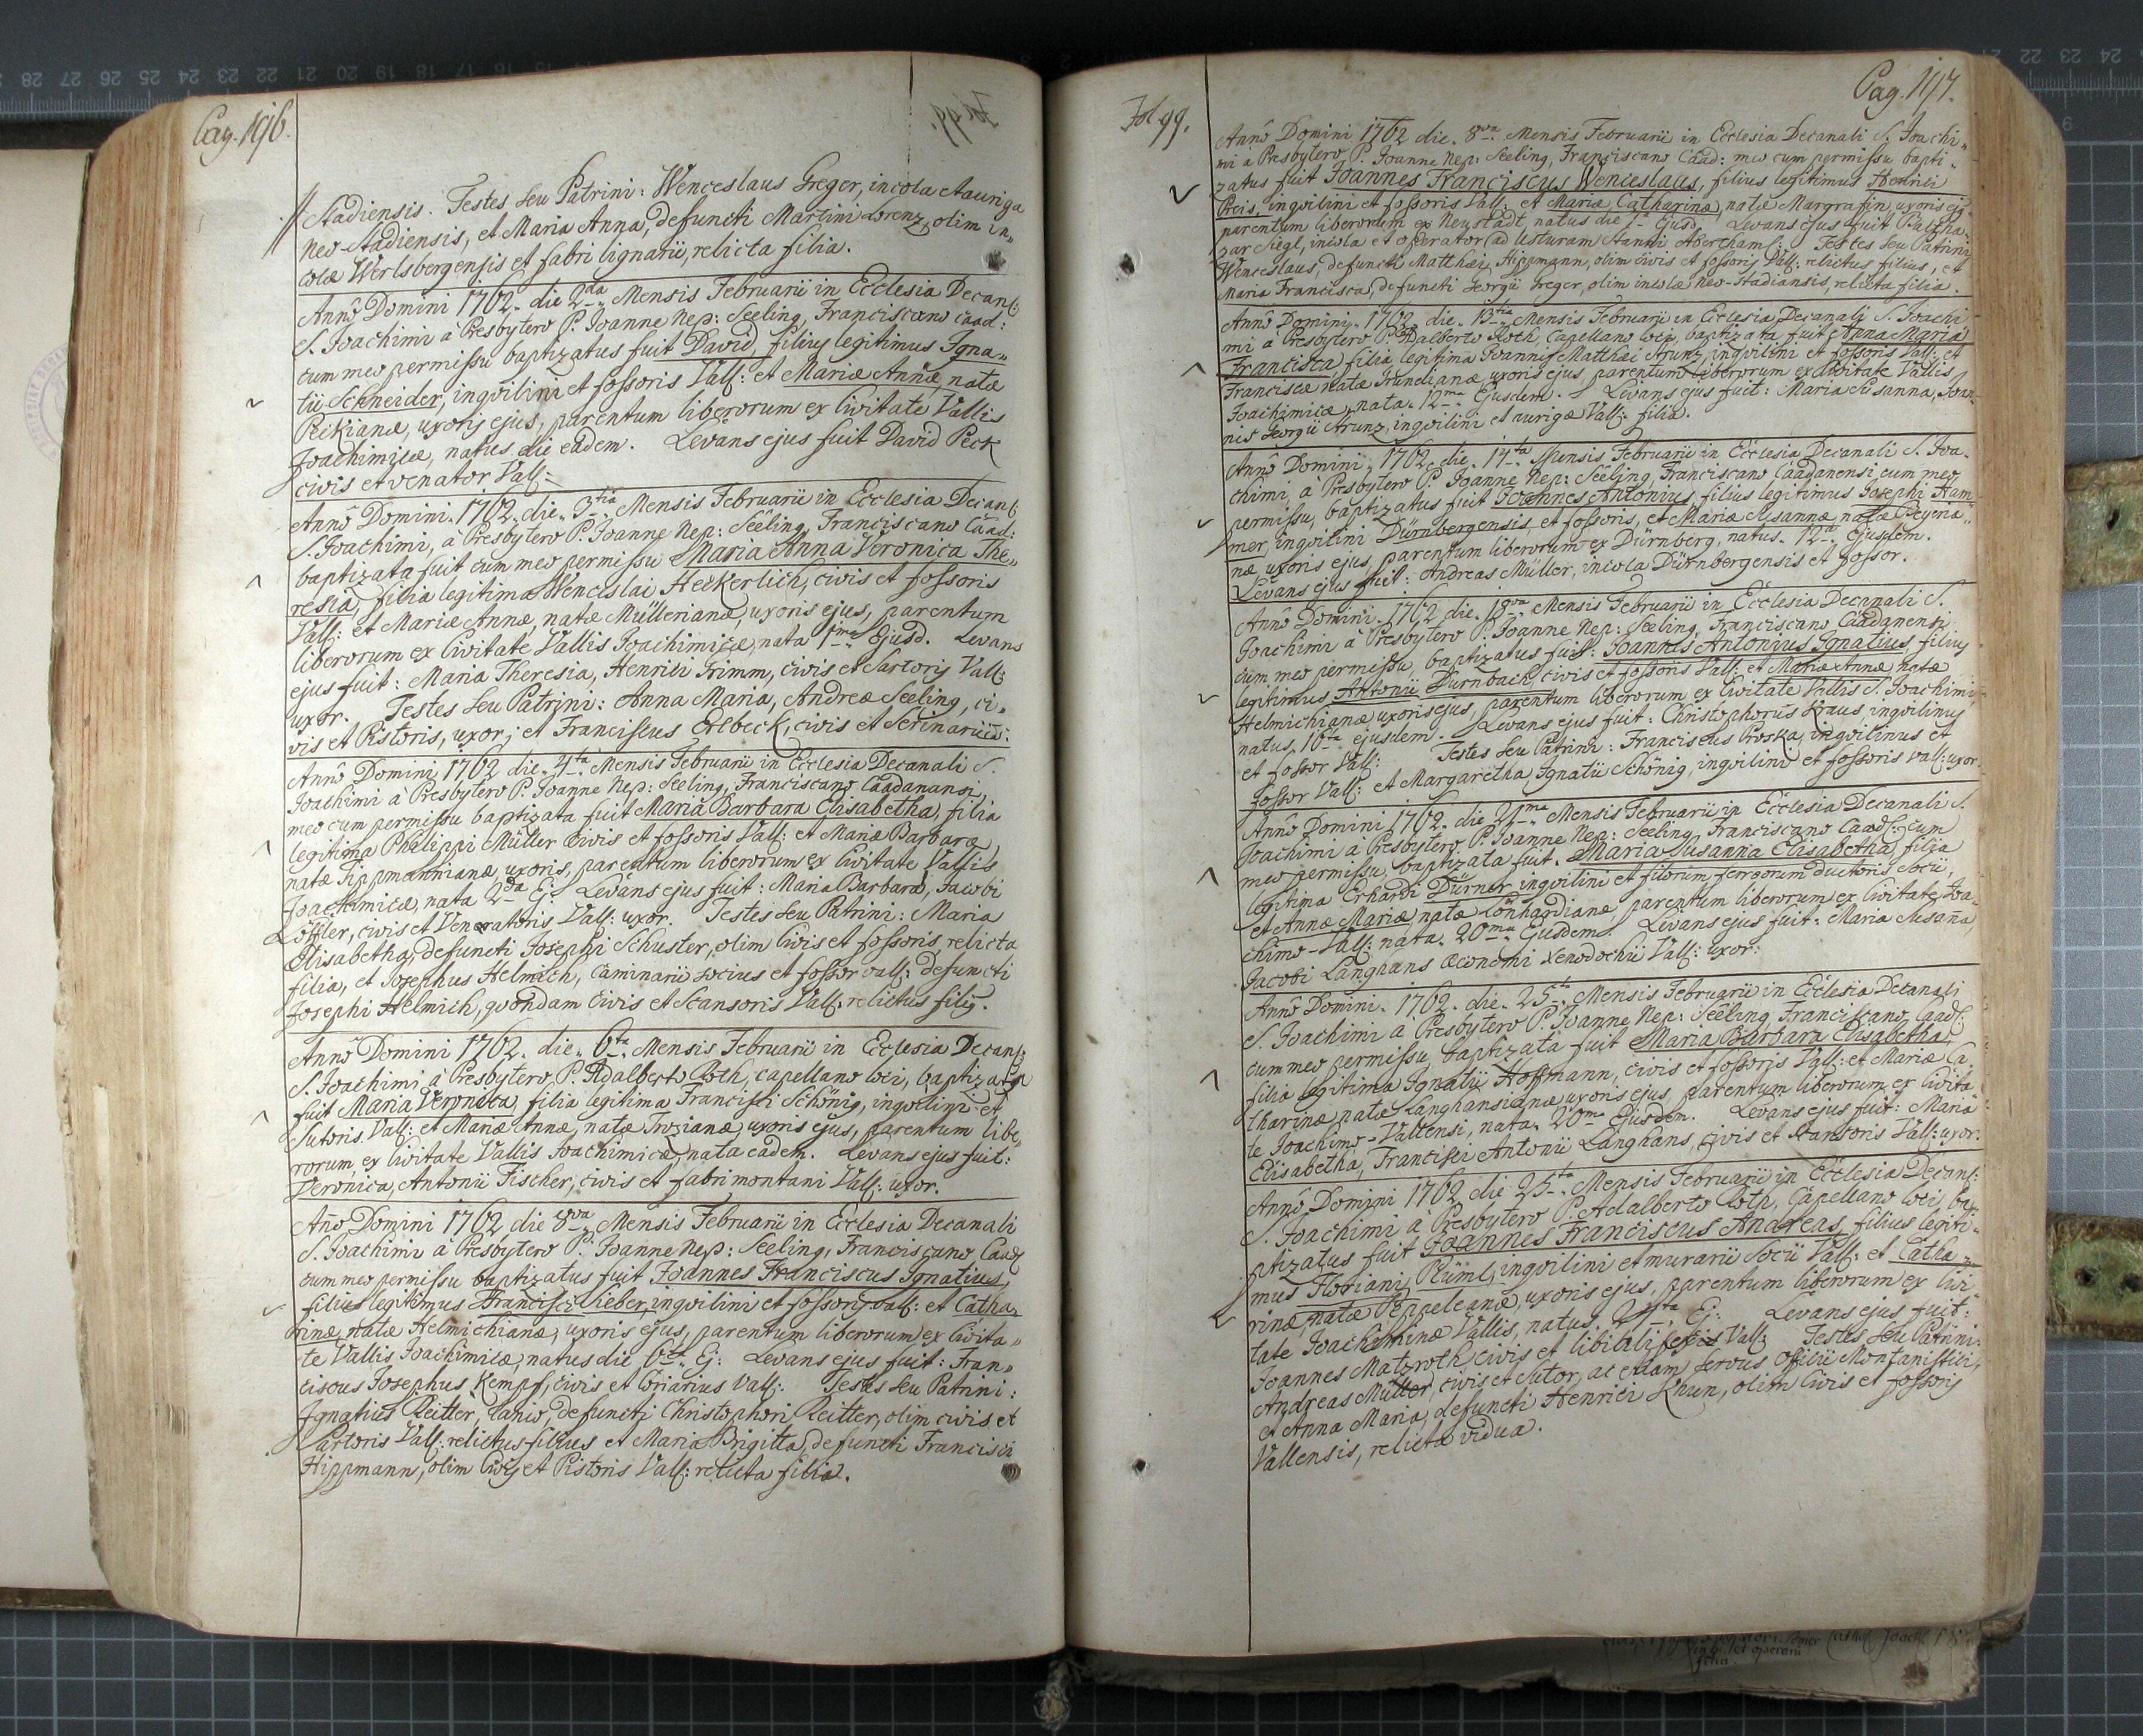 Pag. 196.
Stadiensis. Testes seu Patrini: Wenceslaus Greger, incola et auriga
neo-Stadiensis, et Maria Anna, defuncti Martini Lorenz, olim in„
colæ Werlsbergensis et fabri lignarii, relicta filia.
Annô Domini 1762. die 2da Mensis Februarii in Ecclesia Decanl:
S. Joachimi à Presbytero P. Joanne Nep: Seeling, Franciscano Caad:
cum meo permissu baptizatus fuit David, filius legitimus Igna„
tii Schneider, inqvilini et fossoris Vall: et Mariæ Annæ, natæ
Peckianæ, uxoris ejus, parentum liberorum ex Civitate Vallis
Joachimicæ, natus die eadem. Levans ejus fuit David Peck
civis et venator Vall:
Annô Domini. 1762. die. 3tia Mensis Februarii in Ecclesia Decanl:
S. Joachimi, à Presbytero P. Joanne Nep: Seeling, Franciscano Caad:
baptizata fuit cum meo permissu Maria Anna Veronica The„
resia, filia legitima Wenceslai Heckerlich, civis et fossoris
Vall: et Mariæ Annæ, natæ Müllerianæ, uxoris ejus, parentum
liberorum ex Civitate Vallis Joachimicæ, nata 1ma Ejusd. Levans
ejus fuit: Maria Theresia, Henrici Grimm, civis et Sartoris Vall:
uxor. Testes seu Patrini: Anna Maria, Andreæ Seeling, ci„
vis et Pistoris, uxor; et Franciscus Erlbeck, civis et Scrinarius:
Annô Domini 1762 die. 4ta Mensis Februarii in Ecclesia Decanali S.
Joachimi à Presbytero P. Joanne Nep: Seeling, Franciscano Caadanensi,
meo cum permissu baptizata fuit Maria Barbara Elisabetha, filia
legitima Philippi Müller civis et fossoris Vall: et Mariæ Barbaræ,
natæ Tippmannianæ, uxoris, parentum liberorum ex Civitate Vallis
Joachimicæ, nata 2da Ej: Levans ejus fuit: Maria Barbara, Jacobi
Löffler, civis et Veneratoris Vall: uxor. Testes seu Patrini: Maria
Elisabetha, defuncti Josephi Schuster, olim Civis et fossoris, relicta
filia, et Josephus Helmich, Caminarii socius et fossor vall: defuncti
Josephi Helmich, qvondam Civis et Scansoris Vall: relictus filig.
Annô Domini 1762. die. 6ta Mensis Februarii in Ecclesia Decanl:
S. Joachimi à Presbytero P. Adalberto Roth, capellano loci, baptizata
fuit Maria Veronica, filia legitima Francisci Schönig, inqvilini et
Sutoris. Vall: et Mariæ Annæ, natæ Trozianæ, uxoris ejus, parentum libe„
rorum, ex Civitate Vallis Joachimicæ, nata eadem. Levans ejus fuit:
Veronica, Antonii Fischer, civis et fabri montani Vall: uxor.
Año Domini 1762 die 8va Mensis Februarii in Ecclesia Decanali
S. Joachimi à Presbytero P. Joanne Nep: Seeling, Franciscano Caad:
cum meo permissu baptizatus fuit Joannes Franciscus Ignatius,
filius legitimus Francisci Lieber, inqvilini et fossoris Vall: et Catha„
rinæ, natæ Helmichianæ, uxoris ejus, parentum liberorum ex Civita„
te Vallis Joachimicæ, natus die 6ta Ej: Levans ejus fuit: Fran„
ciscus Josephus Kempf, civis et Coriarius Vall: Testes seu Patrini:
Ignatius Reitter, Lanio, defuncti Christophori Reitter, olim civis et
Sartoris Vall: relictus filius et Maria Brigitta, defuncti Francisci
Hippmann, olim Civis et Pistoris Vall: relicta filia.
Fol 99.
Pag. 197.
Annô Domini 1762 die. 8va Mensis Februarii in Ecclesia Decanali S. Joachi„
mi à Presbytero P. Joanne Nep: Seeling, Franciscano Caad: meo cum permissu bapti„
zatus fuit Joannes Franciscus Wenceslaus, filius legitimus Henrici
Preis, inqvilini et fossoris Vall: et Mariæ Catharinæ, natæ Margrafin, uxoris ejg„
parentum liberorum ex Neustadt, natus die 7. Ejusd. Levans ejus fuit Baltha„
zar Siegl, incola et operator ad usturam stanni Aberthaml: Testes seu Patrini
Wenceslaus, defuncti Matthæi Hippmann, olim civis et fossoris Vall: relictus filius, et
Maria Francisca, defuncti Georgii Greger, olim incolæ neo-Stadiensis, relicta filia.
Annô Domini. 1762. die. 13tia Mensis Februarii in Ecclesia Decanali S. Joachi„
mi à Presbytero P. Adalberto Roth, Capellano loci, baptizata fuit Anna Maria
Francisca, filia legitima Joannis Matthæi Arunz, inqvilini et fossoris Vall: et
Franciscæ natæ uxoris ejus, parentum liberorum ex Civitate Vallis
Joachimicæ, nata. 12ma Ejusdem. Levans ejus fuit: Maria Susanna, Joan„
nis Georgii Arunz, inqvilini et aurigæ Vall: filia.
Annô Domini, 1762. die. 14ta Mensis Februarii in Ecclesia Decanali S. Joa„
chimi, à Presbytero P. Joanne Nep: Seeling, Franciscano Caadanensi cum meo
permissu, baptizatus fuit Joannes Antonius, filius legitimus Josephi Ham„
mer, inqvilini Dürnbergensis, et fossoris, et Mariæ Susannæ, natæ Beyeria„
næ uxoris ejus, parentum liberorum ex Dürnberg, natus. 12. Ejusdem.
Levans ejus fuit: Andreas Müller, incola Dürnbergensis et fossor.
Annô Domini. 1762 die. 18va Mensis Februarii in Ecclesia Decanali S.
Joachimi à Presbytero P. Joanne Nep: Seeling, Franciscano Caadanensi
cum meo permissu, baptizatus fuit: Joannes Antonius Ignatius, filius
legitimus Antonii Durnbach, civis et fossoris Vall: et Mariæ Annæ, natæ
Helmichianæ, uxoris ejus, parentum liberorum ex Civitate Vallis S. Joachimi,
natus. 16ta ejusdem. Levans ejus fuit: Christophorus Kraus, inqvilinus
et fossor Vall: Testes seu Patrini: Franciscus Proska, inqvilinus et
fossor Vall: et Margaretha, Ignatii Schönig, inqvilini et fossoris vall: uxor.
Annô Domini 1762. die 21ma Mensis Februarii in Ecclesia Decanali S.
Joachimi à Presbytero P. Joanne Nep: Seeling, Franciscano Caad: cum
meo permissu, baptizata fuit. Maria Susanna Elisabetha, filia
legitima Erhardi Dürner, inqvilini et filorum ferreorum ductoris socii,
et Annæ Mariæ natæ Lönhardianæ, parentum liberorum ex Civitate Joa„
chimo-Vall: nata. 20ma Ejusdem. Levans ejus fuit: Maria Susaña,
Jacobi Langhans œconomi Xenodochii Vall: uxor:
Annô Domini. 1762. die. 25ta Mensis Februarii in Ecclesia Decanali
S. Joachimi à Presbytero P. Joanne Nep: Seeling Franciscano, Caad:
cum meo permissu, baptizata fuit Maria Barbara Elisabetha,
filia legitima Ignatii Hoffmann, civis et fossoris Vall: et Mariæ Ca„
tharinæ, natæ Langhansianæ uxoris ejus, parentum liberorum, ex Civita„
te Joachimo-Vallensi, nata. 20ma Ejusdem. Levans ejus fuit: Maria
Elisabetha, Francisci Antonii Langhans, civis et Scansoris Vall: uxor.
Annô Domini 1762 die 25ta Mensis Februarii in Ecclesia Decanl:
S. Joachimi à Presbytero P. Adalberto Roth, Capellano loci, ba„
ptizatus fuit Joannes Franciscus Andreas, filius legiti„
mus Floriani Rüml, inqvilini et murarii socii Vall: et Catha„
rinæ, natæ Peppeleanæ, uxoris ejus, parentum liberorum ex Civi„
tate Joachimicæ Vallis, natus. 24ta Ej: Levans ejus fuit:
Joannes Matzroth, civis et Vall: Testes seu Patrini:
Andreas Müller, civis et Sutor, ac etiam servus Officii Montanistici,
et Anna Maria, defuncti Henrici Khun, olim Civis et fossoris
Vallensis, relicta vidua.